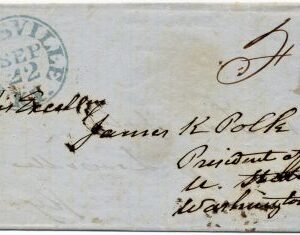 SVILLE
SEP
22
His Excellcy
James K Polk
President of
U. States
Washington